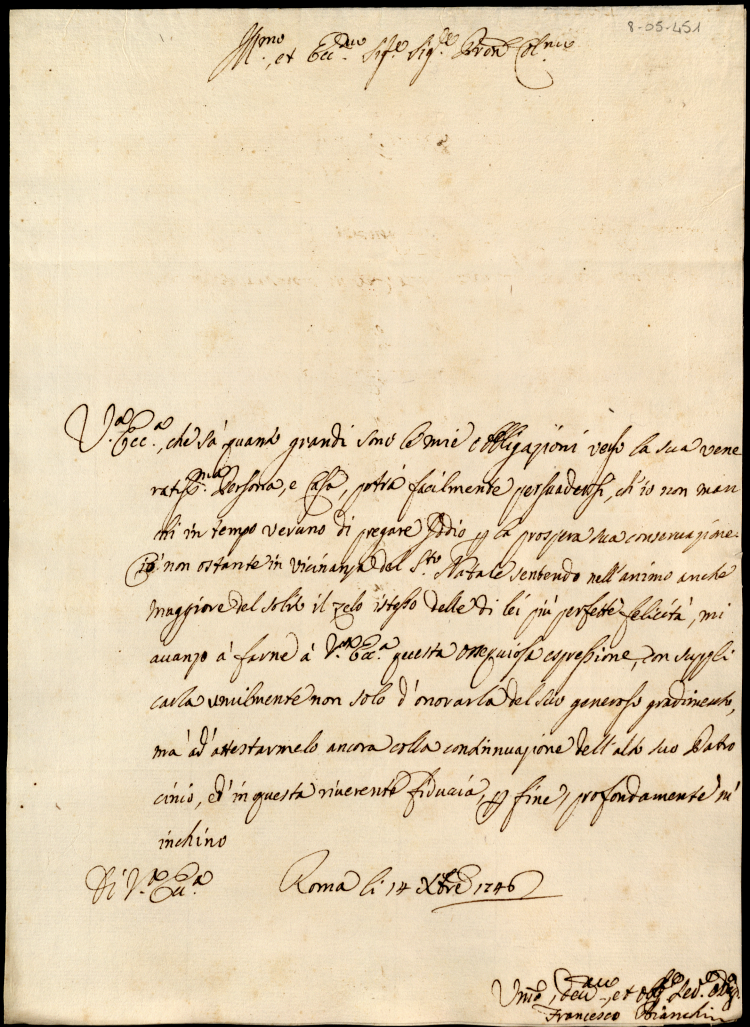 8-05-451
Ill.mo, et Ecc.mo Sig.re Sig.re Pron Col.mo
V.a Ecc.a, che sà quanto grandi sono le mie obbligazioni verso la sua vene
ratiss.ma Persona, e Casa, potrà facilmente persuadersi, ch'io non man
chi in tempo veruno di pregare Iddio p la prospera sua conservazione.
Ciò non ostante in vicinanza del S.to Natale sentendo nell'animo anche
maggiore del solito il zelo istesso delle di lei più perfette felicità, mi
avanzo à farne à V.a Ecc.a questa ossequiosa espressione, con suppli
carla umilmente non solo d'onorarla del suo generoso gradimento,
mà ad'attestarmelo ancora colla continuazione dell'alto suo Patro
cinio, ed' in questa riverente fiducia, p fine, profondamente m'
inchino
Di V.a Ecc.a Roma li 14 Xbre 1746
Um.o, dev.mo, et obb.
Francesco Bianchini